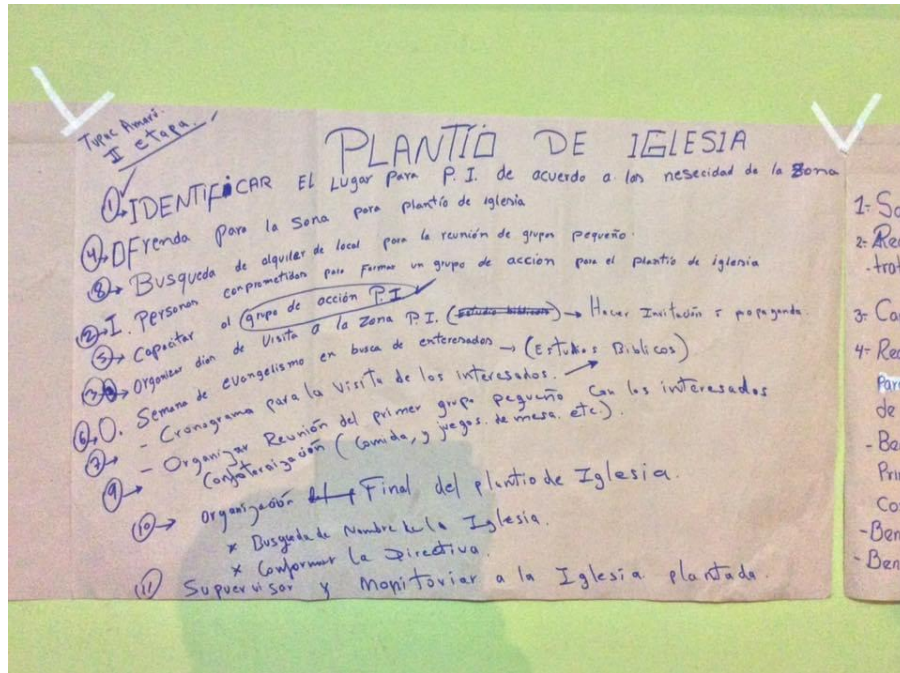 Tupac Amaru.
II etapa.
PLANTÍO DE IGLESIA
① IDENTIFICAR El Lugar Para P. I. de acuerdo a las nesecidad de la Zona
④ → OFrenda para la sona para plantío de iglesia
⑧ → Busqueda de alquiler de local para la reunión de grupos pequeño.
② → I. Personas comprometidas para Formar un grupo de acción para el plantío de iglesia
⑤ → Capacitar al grupo de acción P.I.
③ → Organizar dias de Visita a la Zona P.I. (estudio biblicos) → Hacer Invitación y propaganda.
⑥ O. Semana de evangelismo en busca de enteresados → (Estudios Biblicos)
⑦ → - Cronograma para la Visita de los interesados.
⑨ → - Organizar Reunión del primer grupo pequeño con los interesados
Confraternización (Comida, y juegos de mesa. etc).
⑩ → organización Final del plantio de Iglesia.
* Busqueda de Nombre de la Iglesia.
* Conformar la Directiva.
⑪ Supuervisar y Monitoriar a la Iglesia plantada.
1=
2=
3=
4= Rec
de